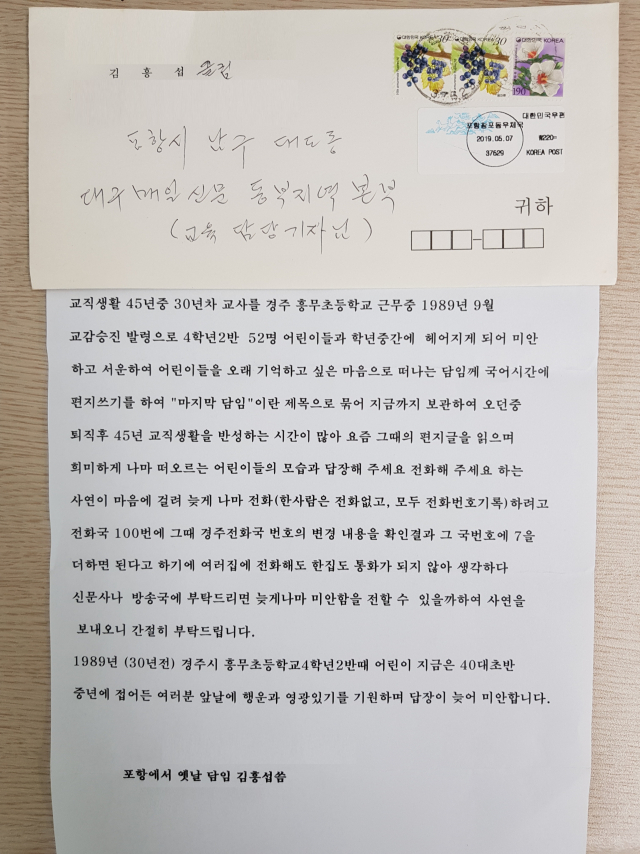 김 홍 섭 올림
30
대한민국 KOREA
30
대한민국 KOREA
190
대한민국우편
2019.05.07
₩220
37629
KOREA POST
포항시 남구 대도동
대구매일신문 동부지역 본부
(교육 담당기자님)
귀하
교직생활 45년중 30년차 교사를 경주 흥무초등학교 근무중 1989년 9월
교감승진 발령으로 4학년2반 52명 어린이들과 학년중간에 헤어지게 되어 미안
하고 서운하여 어린이들을 오래 기억하고 싶은 마음으로 떠나는 담임께 국어시간에
편지쓰기를 하여 "마지막 담임"이란 제목으로 묶어 지금까지 보관하여 오던중
퇴직후 45년 교직생활을 반성하는 시간이 많아 요즘 그때의 편지글을 읽으며
희미하게 나마 떠오르는 어린이들의 모습과 답장해 주세요 전화해 주세요 하는
사연이 마음에 걸려 늦게 나마 전화(한사람은 전화없고, 모두 전화번호기록)하려고
전화국 100번에 그때 경주전화국 번호의 변경 내용을 확인결과 그 국번호에 7을
더하면 된다고 하기에 여러집에 전화해도 한집도 통화가 되지 않아 생각하다
신문사나 방송국에 부탁드리면 늦게나마 미안함을 전할 수 있을까하여 사연을
보내오니 간절히 부탁드립니다.
1989년 (30년전) 경주시 흥무초등학교4학년2반때 어린이 지금은 40대초반
중년에 접어든 여러분 앞날에 행운과 영광있기를 기원하며 답장이 늦어 미안합니다.
포항에서 옛날 담임 김홍섭씀